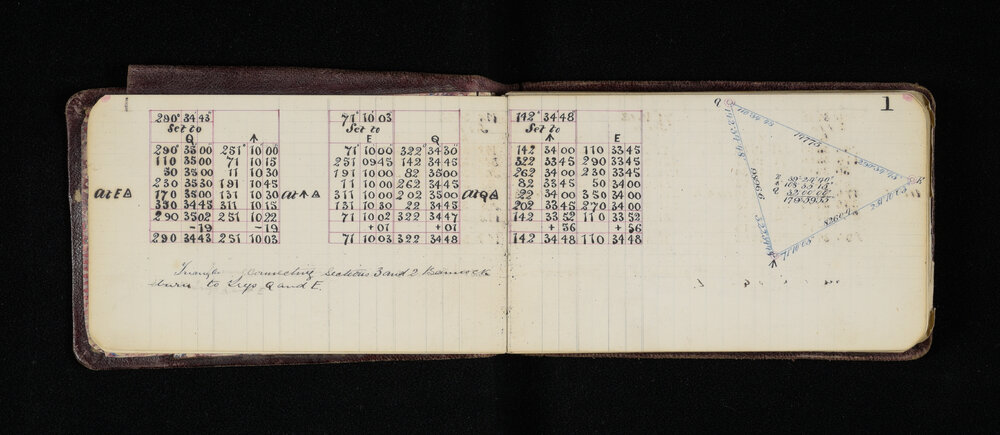 1
290° 34 43
Set to
Q ↑
290° 35 00 251° 10 00
110 35 00 71 10 15
50 35 00 11 10 30
230 35 30 191 10 45
170 35 00 131 10 30
350 34 45 311 10 15
290 35 02 251 10 22
-19 -19
290 34 43 251 10 03
At E △
71° 10 03
Set to
E Q
71° 10 00 322° 34 30
251 09 45 142 34 45
191 10 00 82 35 00
11 10 00 262 34 45
311 10 00 202 35 00
131 10 30 22 34 45
71 10 02 322 34 47
+01 +01
71 10 03 322 34 48
At ↑ △
142° 34 48
Set to
↑ E
142 34 00 110 33 45
322 33 45 290 33 45
262 34 00 230 33 45
82 33 45 50 34 00
22 34 00 350 34 00
202 33 45 270 34 00
142 33 52 110 33 52
+56 +56
142 34 48 110 34 48
At Q △
Triangle connecting sections 3 and 2 Bannock
burn to Trigs Q and E.
Q
E
↑